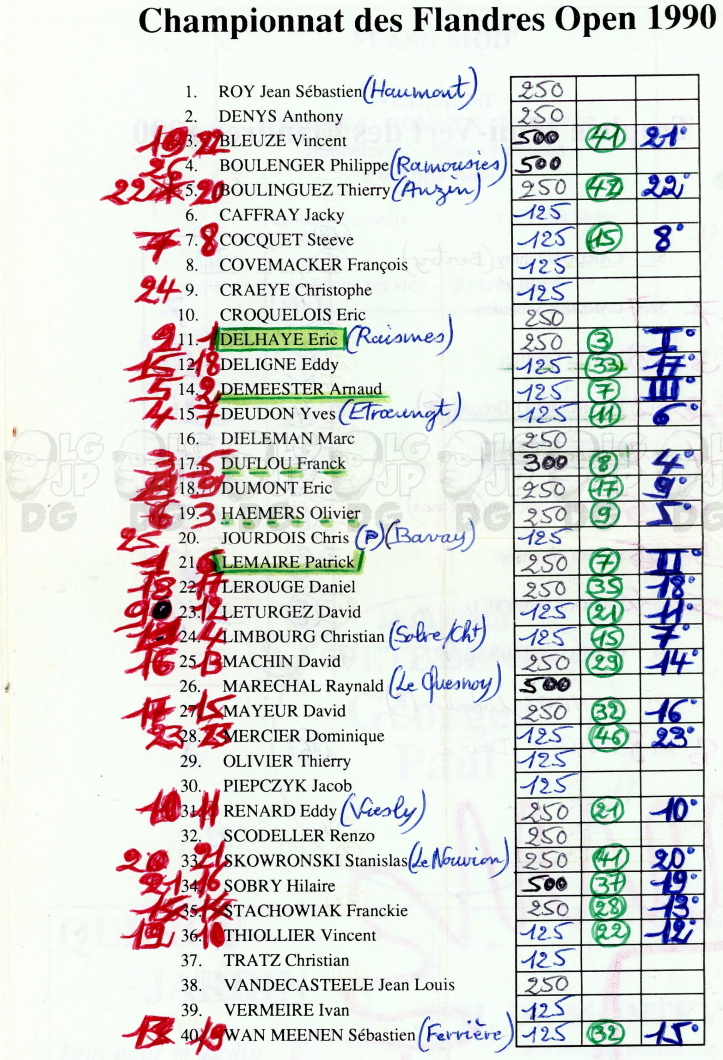 Championnat des Flandres Open 1990
1. ROY Jean Sébastien (Haumont) 250
2. DENYS Anthony 250
3. BLEUZE Vincent 500 41 21°
26 4. BOULENGER Philippe (Ramousies) 500
22 20 5. BOULINGUEZ Thierry (Anzin) 250 42 22°
6. CAFFRAY Jacky 125
7 8 7. COCQUET Steeve 125 15 8°
8. COVEMACKER François 125
24 9. CRAEYE Christophe 125
10. CROQUELOIS Eric 250
9 1 11. DELHAYE Eric (Raismes) 250 3 I°
15 18 12. DELIGNE Eddy 125 33 17°
5 2 14. DEMEESTER Arnaud 125 7 III°
4 7 15. DEUDON Yves (Etrœungt) 125 11 6°
16. DIELEMAN Marc 250
3 5 17. DUFLOU Franck 300 8 4°
9 18. DUMONT Eric 250 17 9°
6 3 19. HAEMERS Olivier 250 9 5°
25 20. JOURDOIS Chris (P) (Bavay) 125
1 6 21. LEMAIRE Patrick 250 7 II°
18 17 22. LEROUGE Daniel 250 35 18°
9 12 23. LETURGEZ David 125 21 11°
4 24. LIMBOURG Christian (Solre/Cht) 125 15 7°
16 13 25. MACHIN David 250 29 14°
26. MARECHAL Raynald (Le Quesnoy) 500
17 15 27. MAYEUR David 250 32 16°
23 23 28. MERCIER Dominique 125 46 23°
29. OLIVIER Thierry 125
30. PIEPCZYK Jacob 125
10 11 31. RENARD Eddy (Viesly) 250 21 10°
32. SCODELLER Renzo 250
20 21 33. SKOWRONSKI Stanislas (Le Nouvion) 250 41 20°
21 16 34. SOBRY Hilaire 500 37 19°
35. STACHOWIAK Franckie 250 28 13°
10 36. THIOLLIER Vincent 125 22 12°
37. TRATZ Christian 125
38. VANDECASTEELE Jean Louis 250
39. VERMEIRE Ivan 125
19 40. WAN MEENEN Sébastien (Ferrière) 125 32 15°
LG
JP
DG